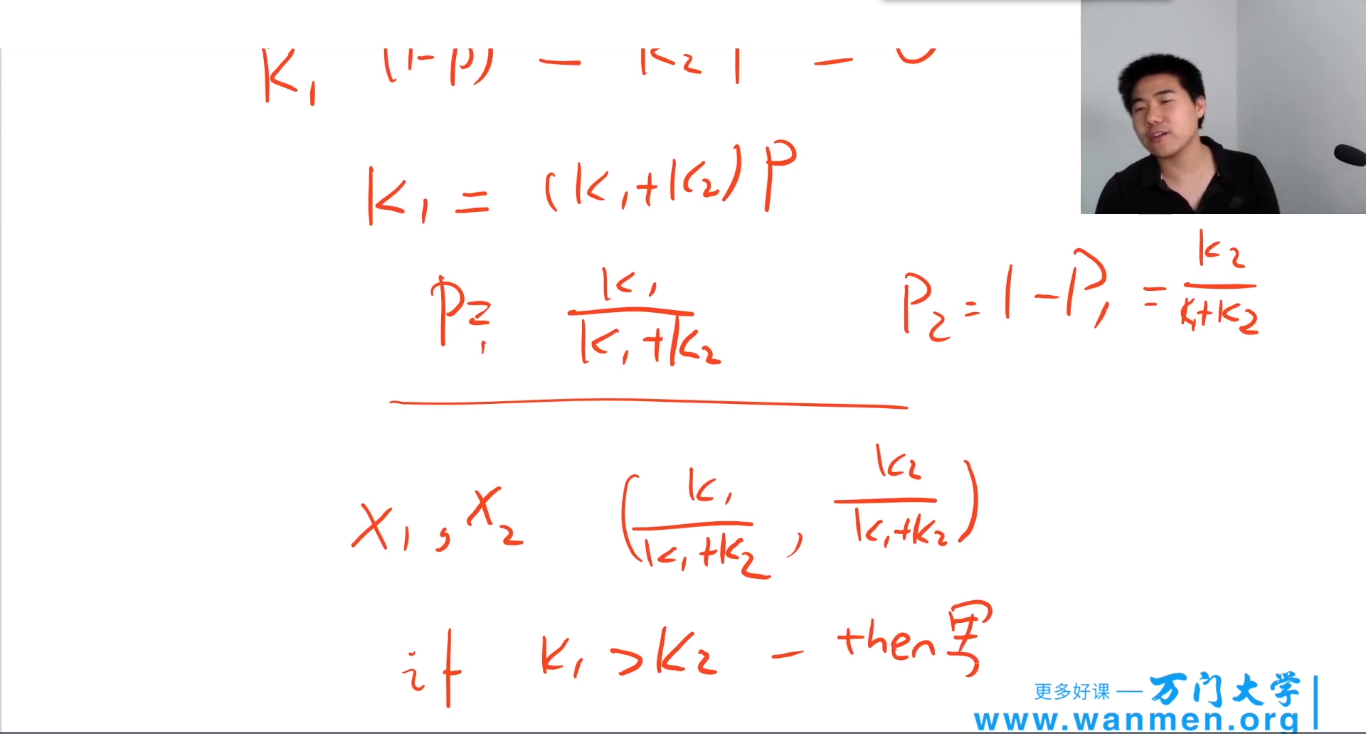 K₁ (1-p) - K₂ p - 0
K₁ = (K₁+K₂) P
P₁ = K₁/(K₁+K₂)
P₂ = 1-P₁ = K₂/(K₁+K₂)
X₁, X₂ (K₁/(K₁+K₂), K₂/(K₁+K₂))
if K₁ > K₂ - then 男
更多好课 — 万门大学
www.wanmen.org